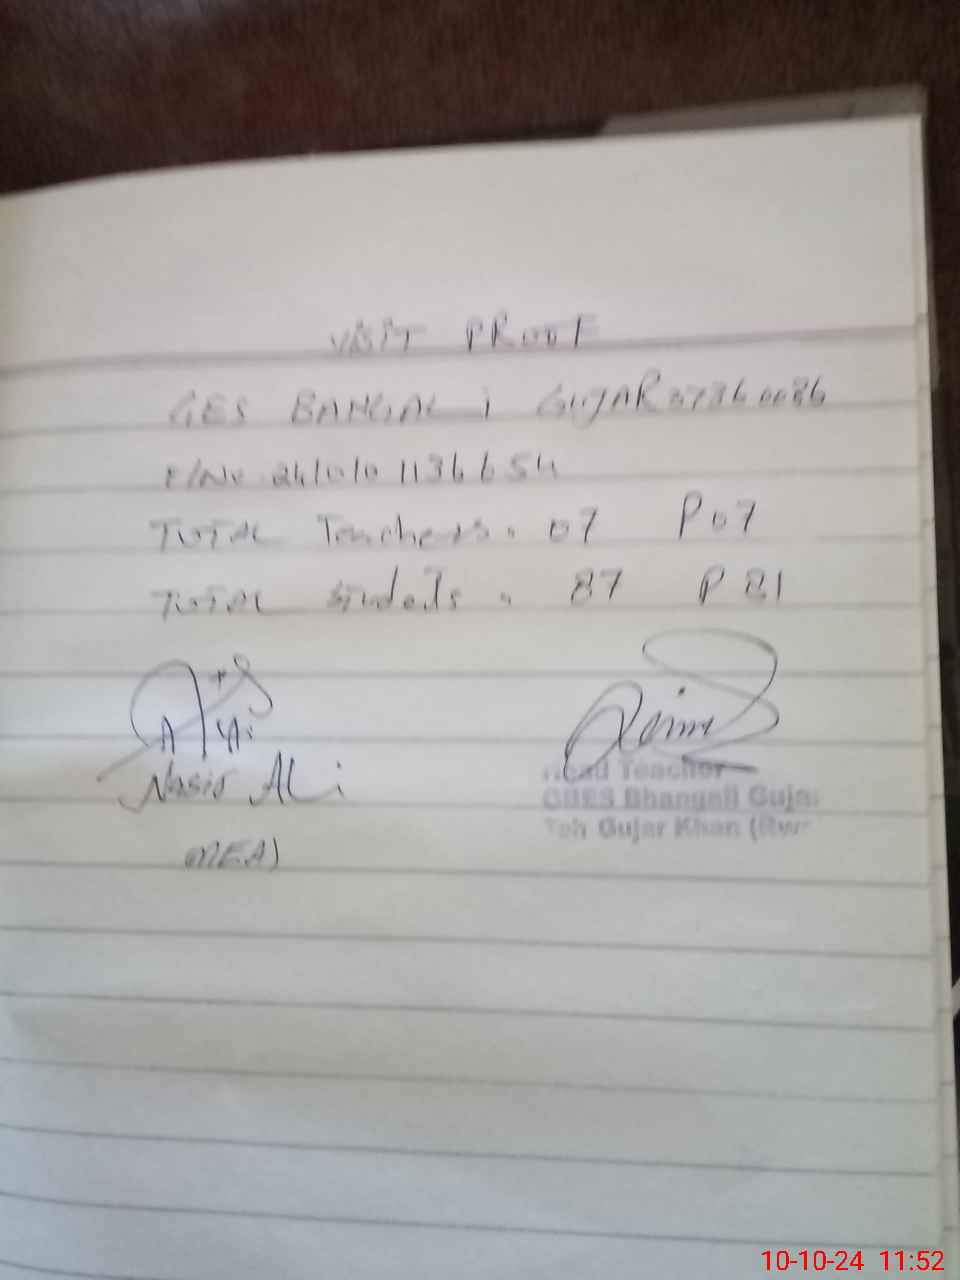 VISIT PROOF
GES BANGALI GUJAR 37360086
F/No 241010 1136654
TOTAL Teachers. 07 P 07
TOTAL Students. 87 P 81
Nasir ALi
(MEA)
Head Teacher
GBES Bhangali Gujar
Teh Gujar Khan (Rwp
10-10-24 11:52